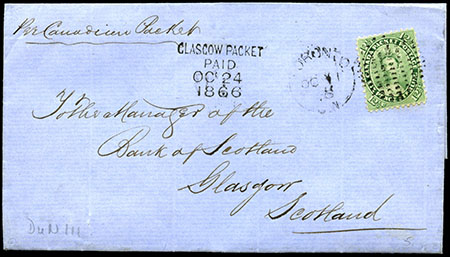 Per Canadian Packet
GLASGOW PACKET
PAID
OC 24
1866
TORONTO
To the Manager of the
Bank of Scotland
Glasgow
Scotland